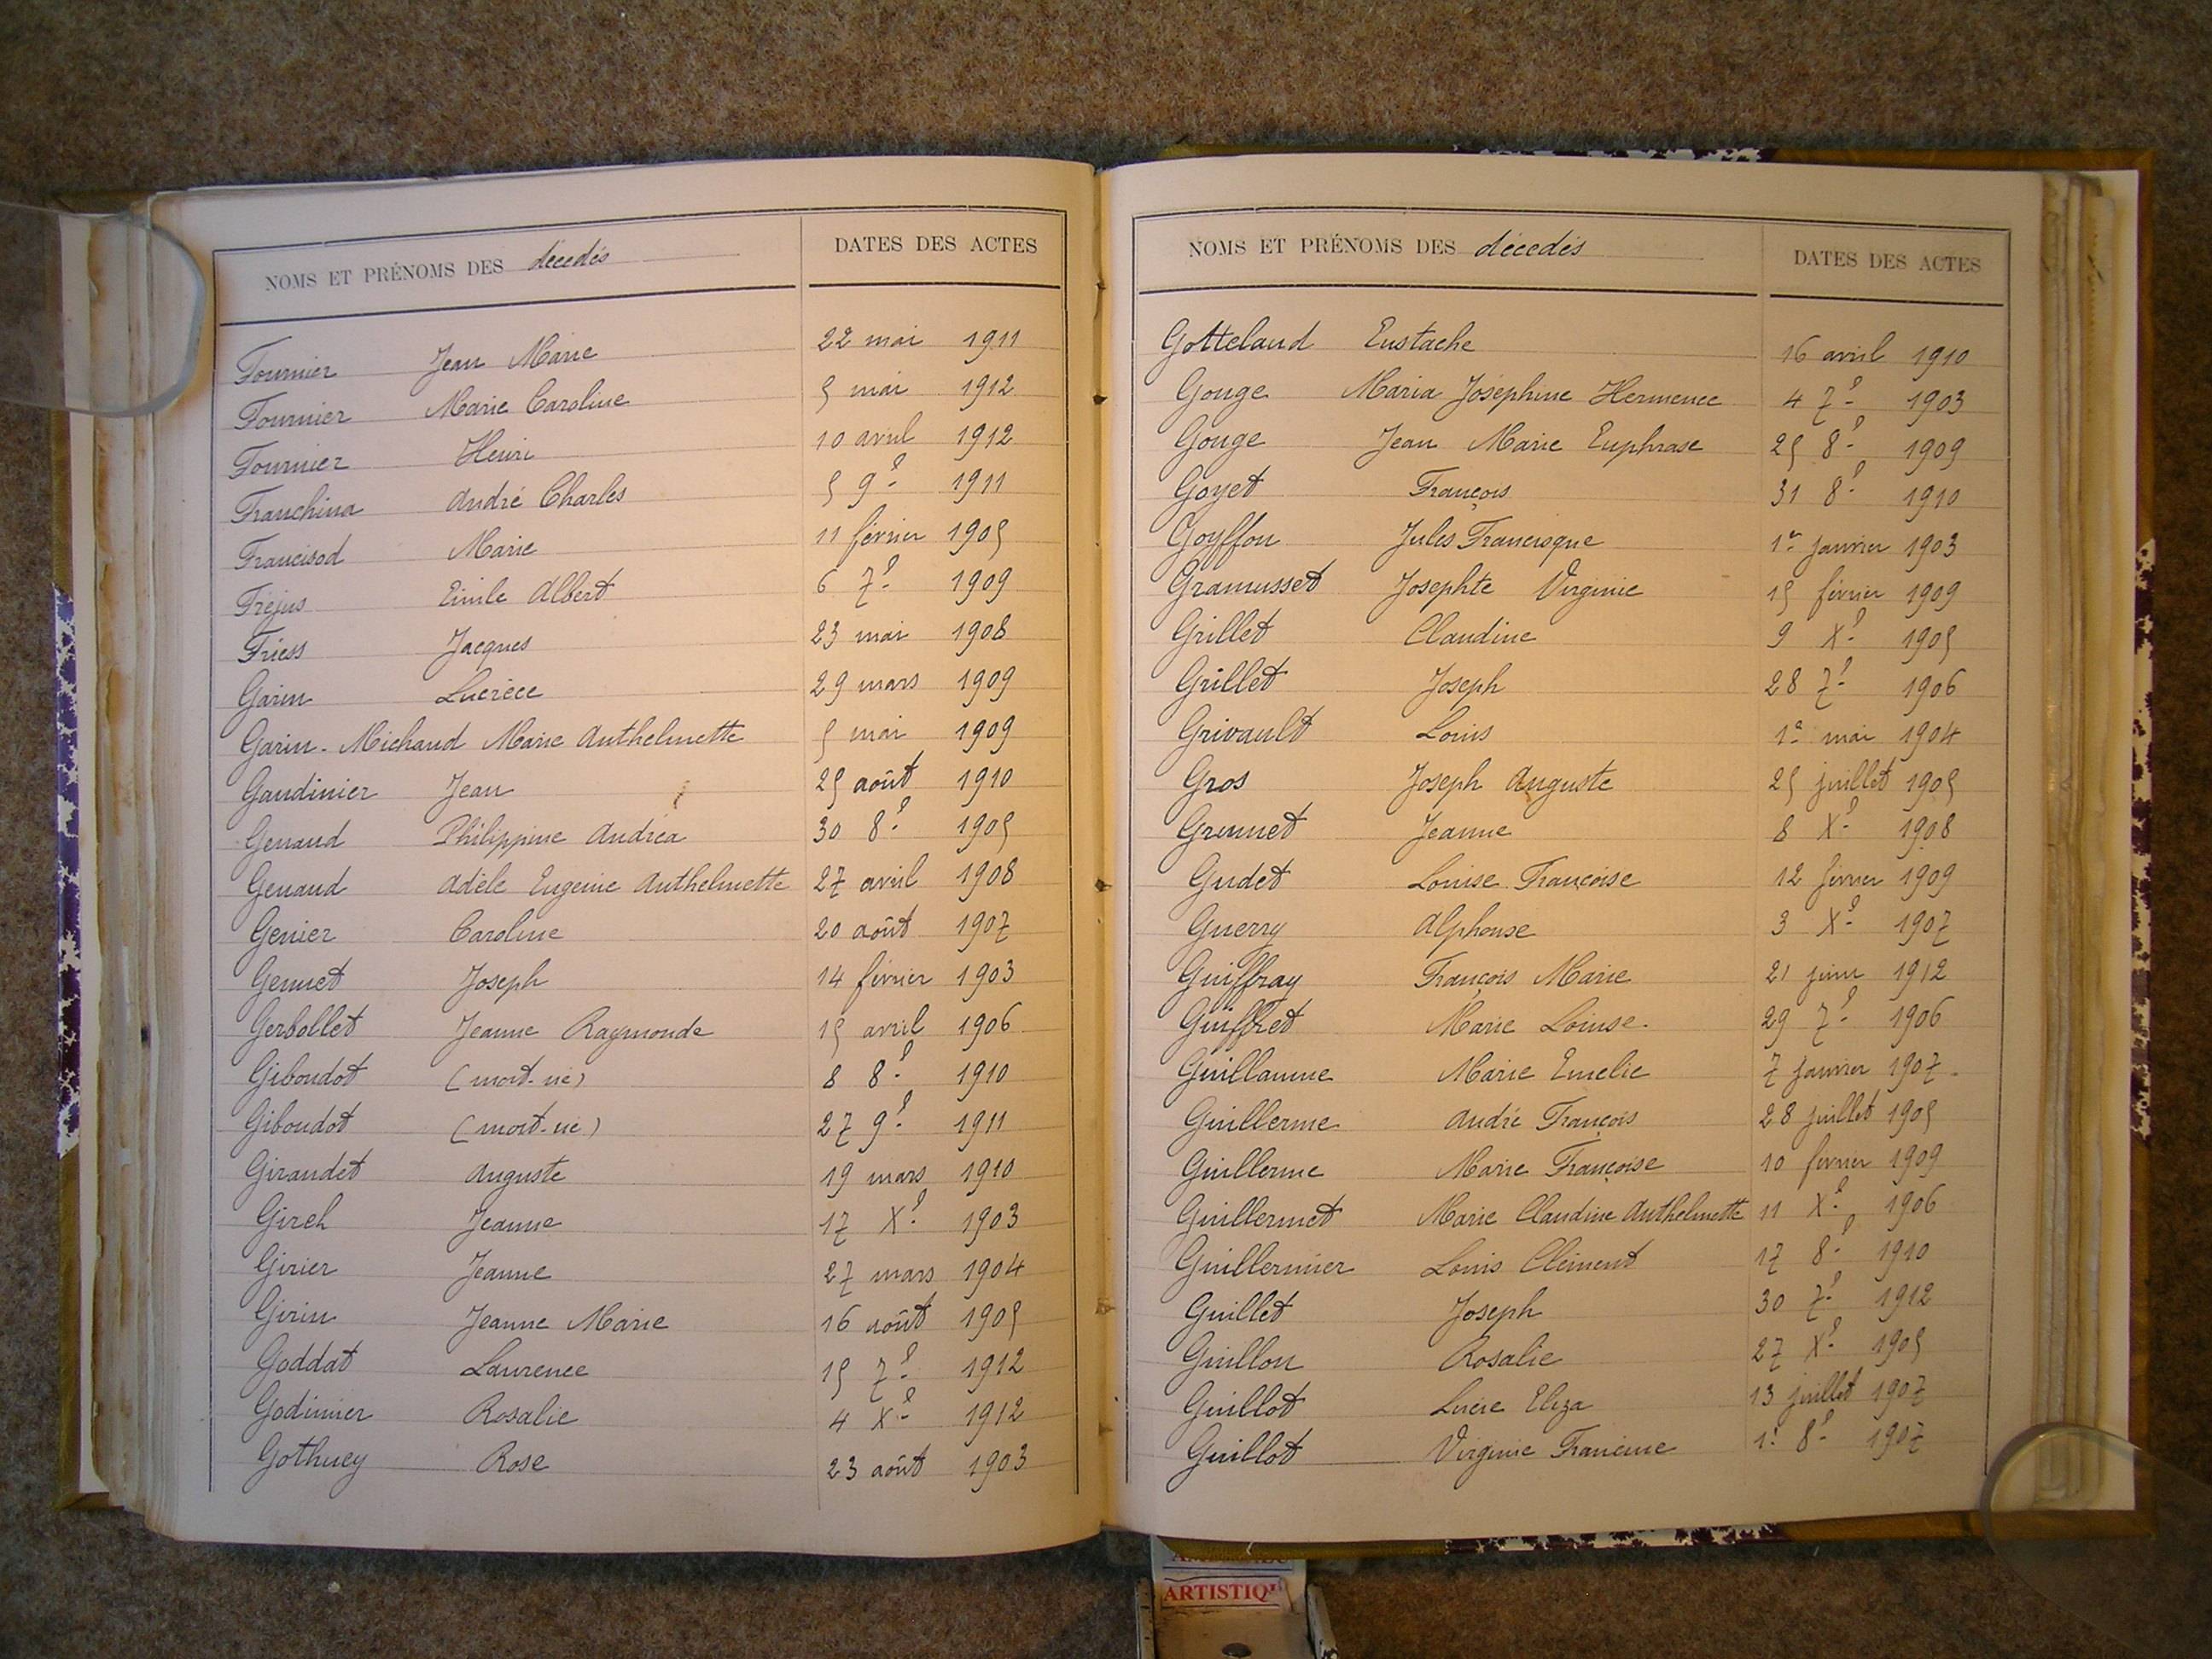 NOMS ET PRÉNOMS DES décédés DATES DES ACTES
Fournier Jean Marie 22 mai 1911
Fournier Marie Caroline 5 mai 1912
Fournier Henri 10 avril 1912
Franchina André Charles 5 9e 1911
Francisod Marie 11 février 1905
Fréjus Emile Albert 6 7e 1909
Friess Jacques 23 mai 1908
Garin Lucrèce 29 mars 1909
Garin-Michaud Marie Anthelmette 5 mai 1909
Gaudinier Jean 25 août 1910
Genaud Philippine Andréa 30 8e 1905
Genaud Adèle Eugenie Anthelmette 27 avril 1908
Genier Caroline 20 août 1907
Gennet Joseph 14 février 1903
Gerbollet Jeanne Raymonde 15 avril 1906
Giboudot (mort-né) 8 8e 1910
Giboudot (mort-né) 27 9e 1911
Giraudet Auguste 19 mars 1910
Girel Jeanne 17 Xe 1903
Girier Jeanne 27 mars 1904
Girin Jeanne Marie 16 août 1905
Goddat Laurence 15 7e 1912
Godinier Rosalie 4 Xe 1912
Gothuey Rose 23 août 1903
NOMS ET PRÉNOMS DES décédés DATES DES ACTES
Gotteland Eustache 16 avril 1910
Gouge Maria Joséphine Hermence 4 7e 1903
Gouge Jean Marie Euphrase 25 8e 1909
Goyet François 31 8e 1910
Goyffon Jules Francisque 1er janvier 1903
Gramusset Josephte Virginie 15 février 1909
Grillet Claudine 9 Xe 1905
Grillet Joseph 28 7e 1906
Grivault Louis 1er mai 1904
Gros Joseph Auguste 25 juillet 1905
Jeanne 8 Xe 1908
Gudet Louise Françoise 12 février 1909
Guerry Alphonse 3 Xe 1907
Guiffray François Marie 21 juin 1912
Guiffret Marie Louise 29 7e 1906
Guillaume Marie Emelie 7 janvier 1907
Guillerme André François 28 juillet 1905
Guillerme Marie Françoise 10 février 1909
Guillermet Marie Claudine Anthelmette 11 Xe 1906
Guillermier Louis Clément 17 8e 1910
Guillet Joseph 30 7e 1912
Guillon Rosalie 27 Xe 1905
Guillot Lucie Eliza 13 juillet 1907
Guillot Virginie Francine 1er 8e 1907
ARTISTIQU